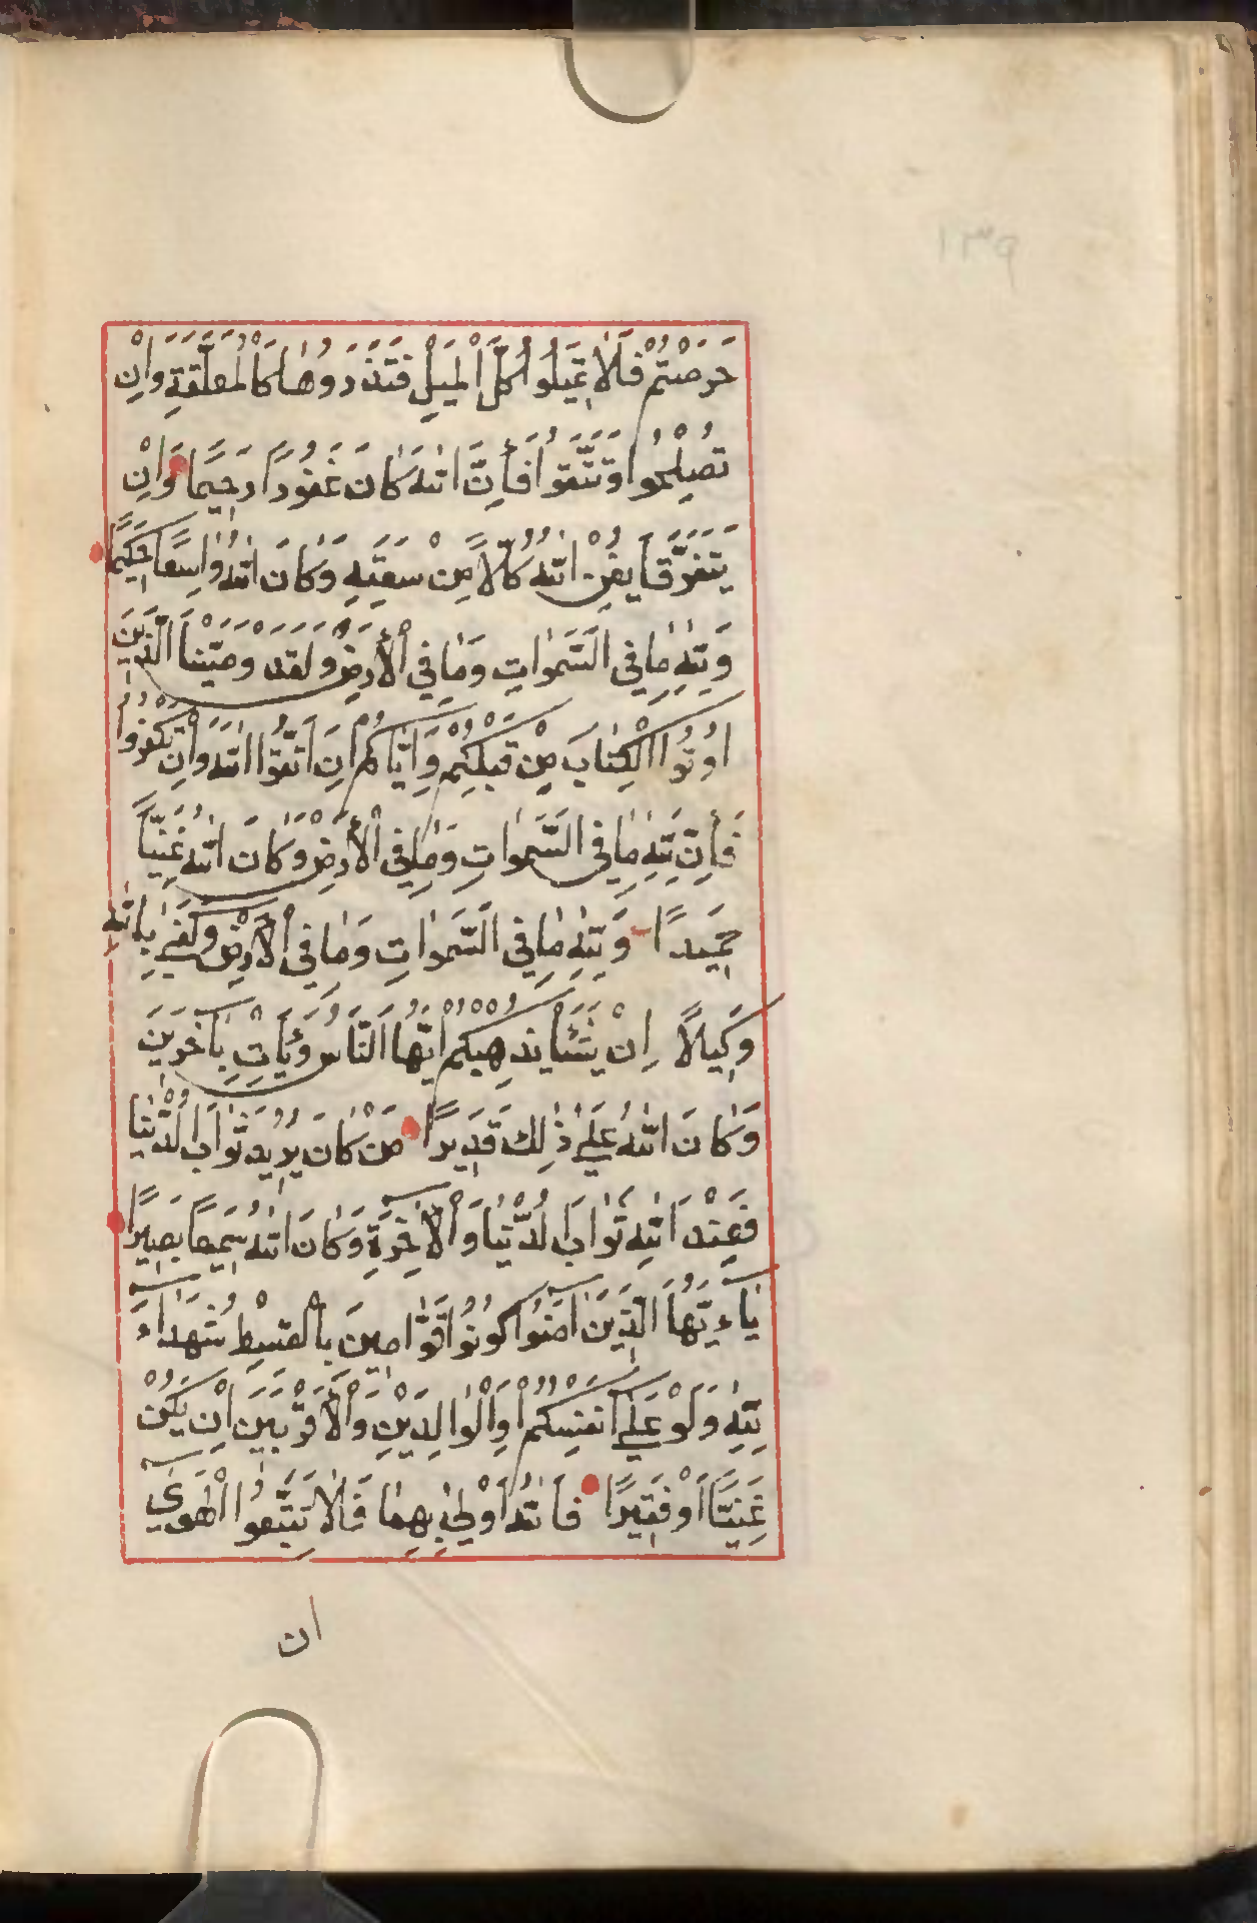 ١٣٩
حَرَصْتُمْ فَلَا تَمِيلُوا كُلَّ الْمَيْلِ فَتَذَرُوهَا كَالْمُعَلَّقَةِ وَاِنْ
تُصْلِحُوا وَتَتَّقُوا فَاِنَّ اللّٰهَ كَانَ غَفُورًا رَحِيمًا وَاِنْ
يَتَفَرَّقَا يُغْنِ اللّٰهُ كُلًّا مِنْ سَعَتِهِ وَكَانَ اللّٰهُ وَاسِعًا حَكِيمًا
وَلِلّٰهِ مَا فِي السَّمٰوَاتِ وَمَا فِي الْاَرْضِ وَلَقَدْ وَصَّيْنَا الَّذِينَ
اُوتُوا الْكِتَابَ مِنْ قَبْلِكُمْ وَاِيَّاكُمْ اَنِ اتَّقُوا اللّٰهَ وَاِنْ تَكْفُرُوا
فَاِنَّ لِلّٰهِ مَا فِي السَّمٰوَاتِ وَمَا فِي الْاَرْضِ وَكَانَ اللّٰهُ غَنِيًّا
حَمِيدًا وَلِلّٰهِ مَا فِي السَّمٰوَاتِ وَمَا فِي الْاَرْضِ وَكَفٰى بِاللّٰهِ
وَكِيلًا اِنْ يَشَأْ يُذْهِبْكُمْ اَيُّهَا النَّاسُ وَيَأْتِ بِآخَرِينَ
وَكَانَ اللّٰهُ عَلٰى ذٰلِكَ قَدِيرًا مَنْ كَانَ يُرِيدُ ثَوَابَ الدُّنْيَا
فَعِنْدَ اللّٰهِ ثَوَابُ الدُّنْيَا وَالْآخِرَةِ وَكَانَ اللّٰهُ سَمِيعًا بَصِيرًا
يَاءَيُّهَا الَّذِينَ آمَنُوا كُونُوا قَوَّامِينَ بِالْقِسْطِ شُهَدَاءَ
لِلّٰهِ وَلَوْ عَلٰى اَنْفُسِكُمْ اَوِ الْوَالِدَيْنِ وَالْاَقْرَبِينَ اِنْ يَكُنْ
غَنِيًّا اَوْ فَقِيرًا فَاللّٰهُ اَوْلٰى بِهِمَا فَلَا تَتَّبِعُوا الْهَوٰى
ان